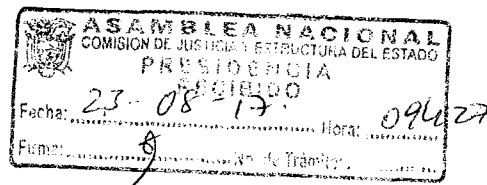 ASAMBLEA NACIONAL
COMISIÓN DE JUSTICIA Y ESTRUCTURA DEL ESTADO
PRESIDENCIA
RECIBIDO
Fecha: 23-08-17. Hora: 09h27
Firma: No. de Trámite: